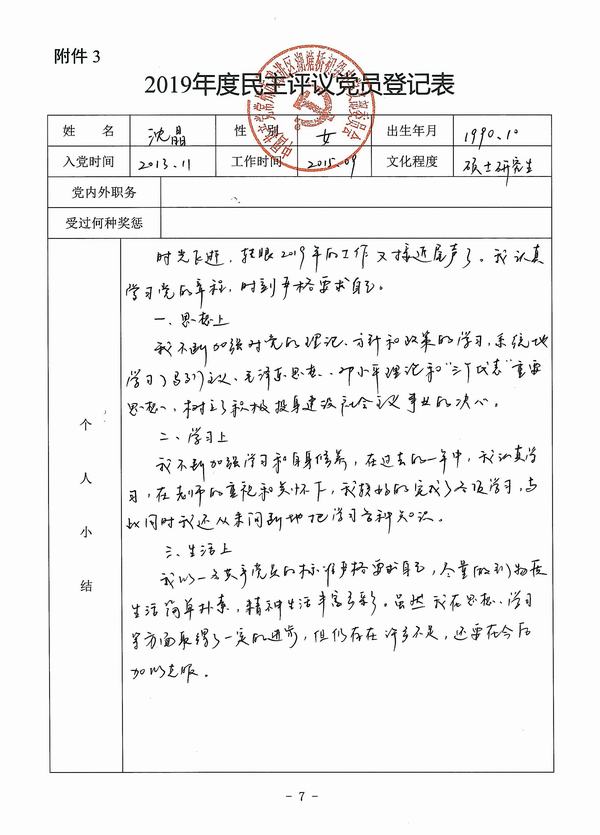 附件 3
2019年度民主评议党员登记表
姓 名 沈晶 性 别 女 出生年月 1990.10
入党时间 2013.11 工作时间 2015.09 文化程度 硕士研究生
党内外职务
受过何种奖惩
个人小结
时光飞逝，转眼2019年的工作又接近尾声了。我认真
学习党的章程，时刻严格要求自己。
一、思想上
我不断加强对党的理论、方针和政策的学习，系统地
学习了马列主义、毛泽东思想、邓小平理论和“三个代表”重要
思想、树立了积极投身建设社会主义事业的决心。
二、学习上
我不断加强学习和自身修养，在过去的一年中，我认真学
习，在老师的重视和关怀下，我较好的完成了各项学习，与
此同时我还从未间断地把学习各种知识。
三、生活上
我以一名共产党员的标准严格要求自己，尽量做到物质
生活简单朴素，精神生活丰富多彩。虽然我在思想、学习
等方面取得了一定的进步，但仍存在许多不足，还要在今后
加以克服。
- 7 -